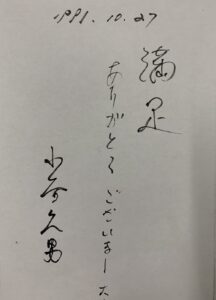 1991.10.27
満足
ありがとうございました
小河久男